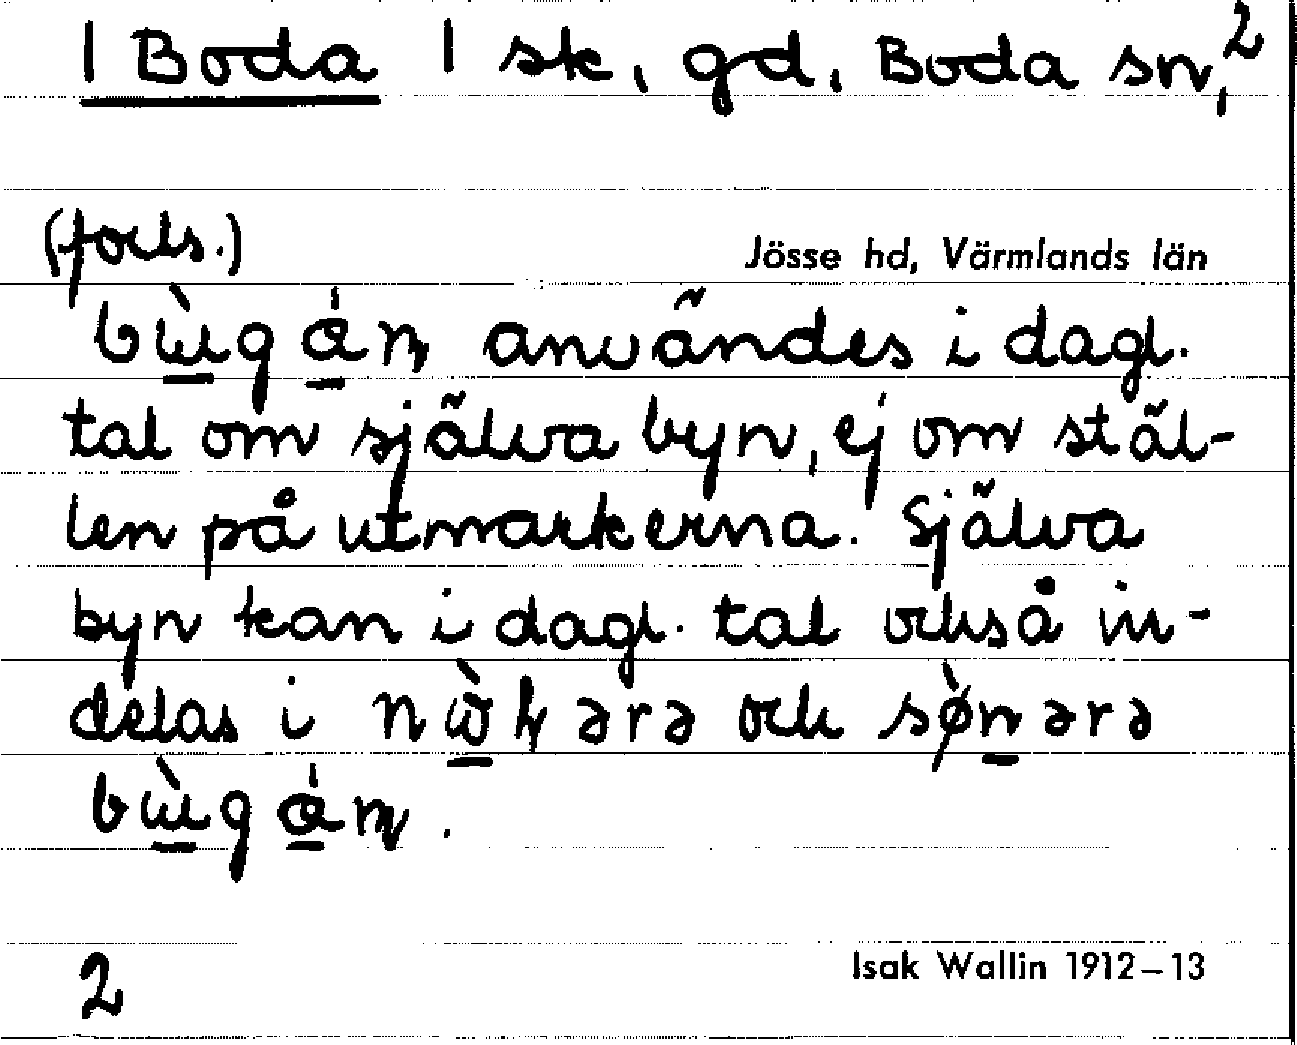 | Boda | sk, gd, Boda sn, 2
(forts.)
Jösse hd, Värmlands län
användes i dagl.
tal om själva byn, ej om stäl-
len på utmarkerna. Själva
byn kan i dagl. tal också in-
delas i och
Isak Wallin 1912–13
2